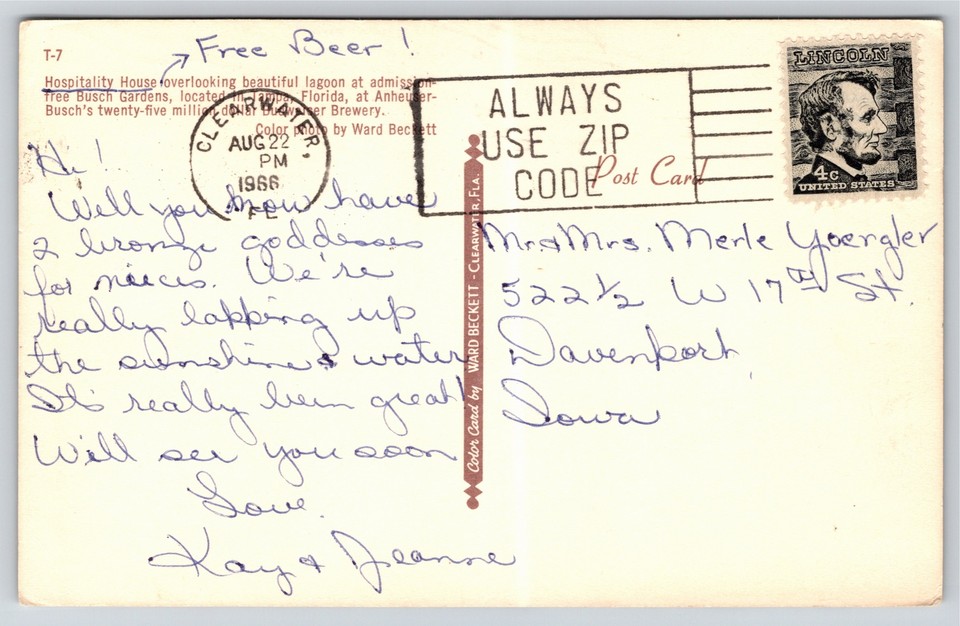 Free Beer!
T-7
Hospitality House overlooking beautiful lagoon at admission-
free Busch Gardens, located in Tampa, Florida, at Anheuser-
Busch's twenty-five million dollar Budweiser Brewery.
Color photo by Ward Beckett
CLEARWATER,
AUG 22
PM
1966
FL
ALWAYS
USE ZIP
CODE
LINCOLN
4c
UNITED STATES
Post Card
Hi!
Well you know have
2 bronze goddesses
for nieces. We're
really lapping up
the sunshine & water
It's really been great!
Will see you soon
Love.
Kay & Jeanne
Color Card by WARD BECKETT - CLEARWATER, FLA.
Mr. & Mrs. Merle Yoergler
522 1/2 W 17th St.
Davenport
Iowa